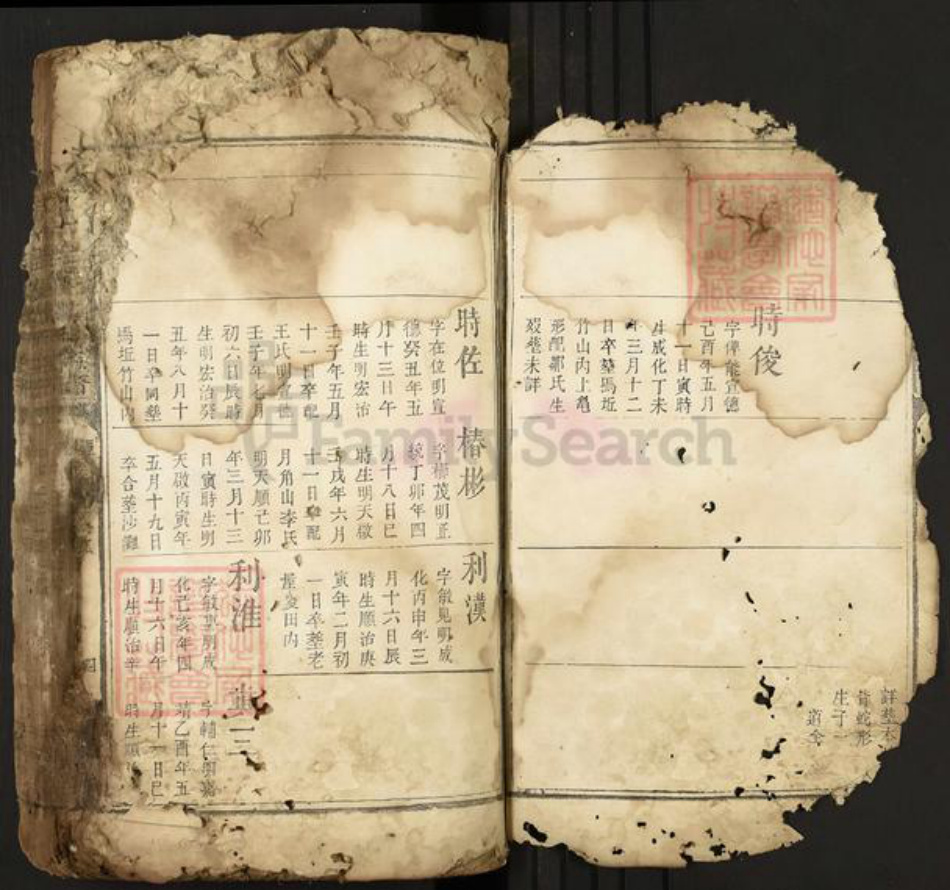 詳塟木
背蛇形
生子一
道全
時俊
字俾能宣德
己酉年五月
十一日寅時
生成化丁未
年三月十二
日卒塟馬坵
竹山丙上亀
形配鄒氏生
歿塟未詳
時佐
字在位明宣
德癸丑年五
月十三日午
時生明宏治
壬子年五月
十一日卒配
王氏明宣德
壬子年七月
初六日辰時
生明宏治癸
丑年八月十
一日卒同塟
馬坵竹山內
椿彬
字 茂明正
統丁卯年四
月十八日巳
時生明天啟
壬戌年六月
十一日卒配
月角山李氏
明天順己卯
年三月十三
日寅時生明
天啟丙寅年
五月十九日
卒合塟沙灘
利漢
字敏見明成
化丙申年三
月十六日辰
時生順治庚
寅年二月初
一日卒塟老
屋 田內
利淮
字敏 明成
化己亥年四
月十六日午
時生順治辛
字輔仁明嘉
靖乙酉年五
月十一日巳
時生順
四
FamilySearch